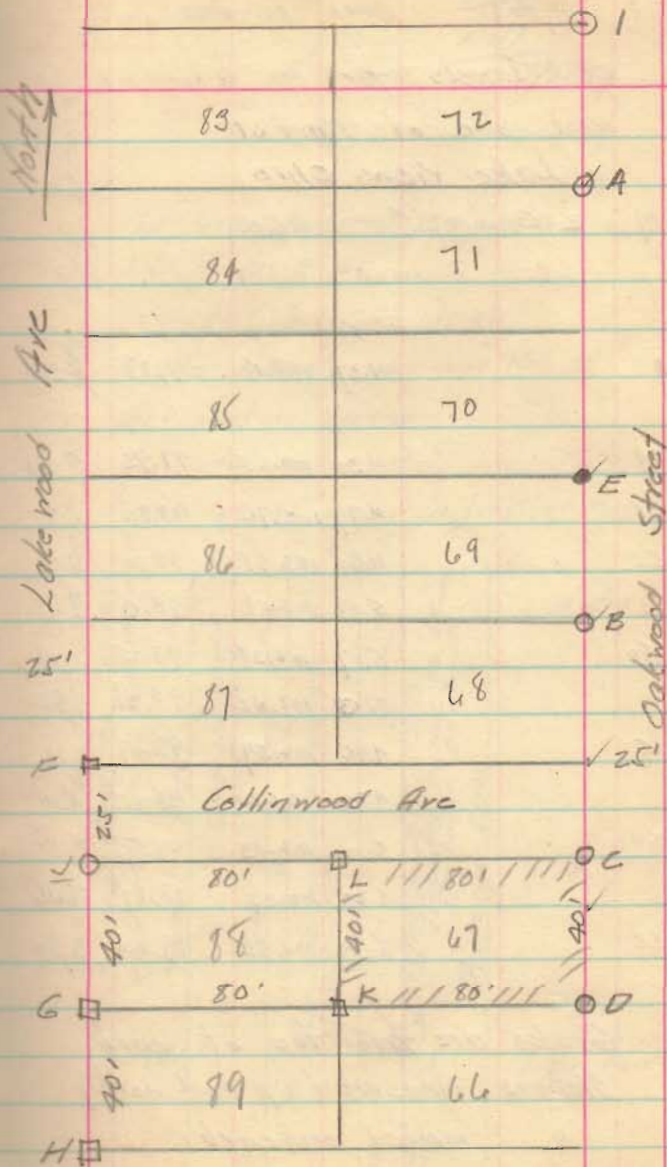 1
North
83 72
A
84 71
Lakewood Ave
85 70
E
Oakwood Street
86 69
B
25'
87 68
F 25'
25' Collinwood Ave
C
80' L 80'
40' 88 40' 67 40'
G 80' K 80' D
40' 89 66
H